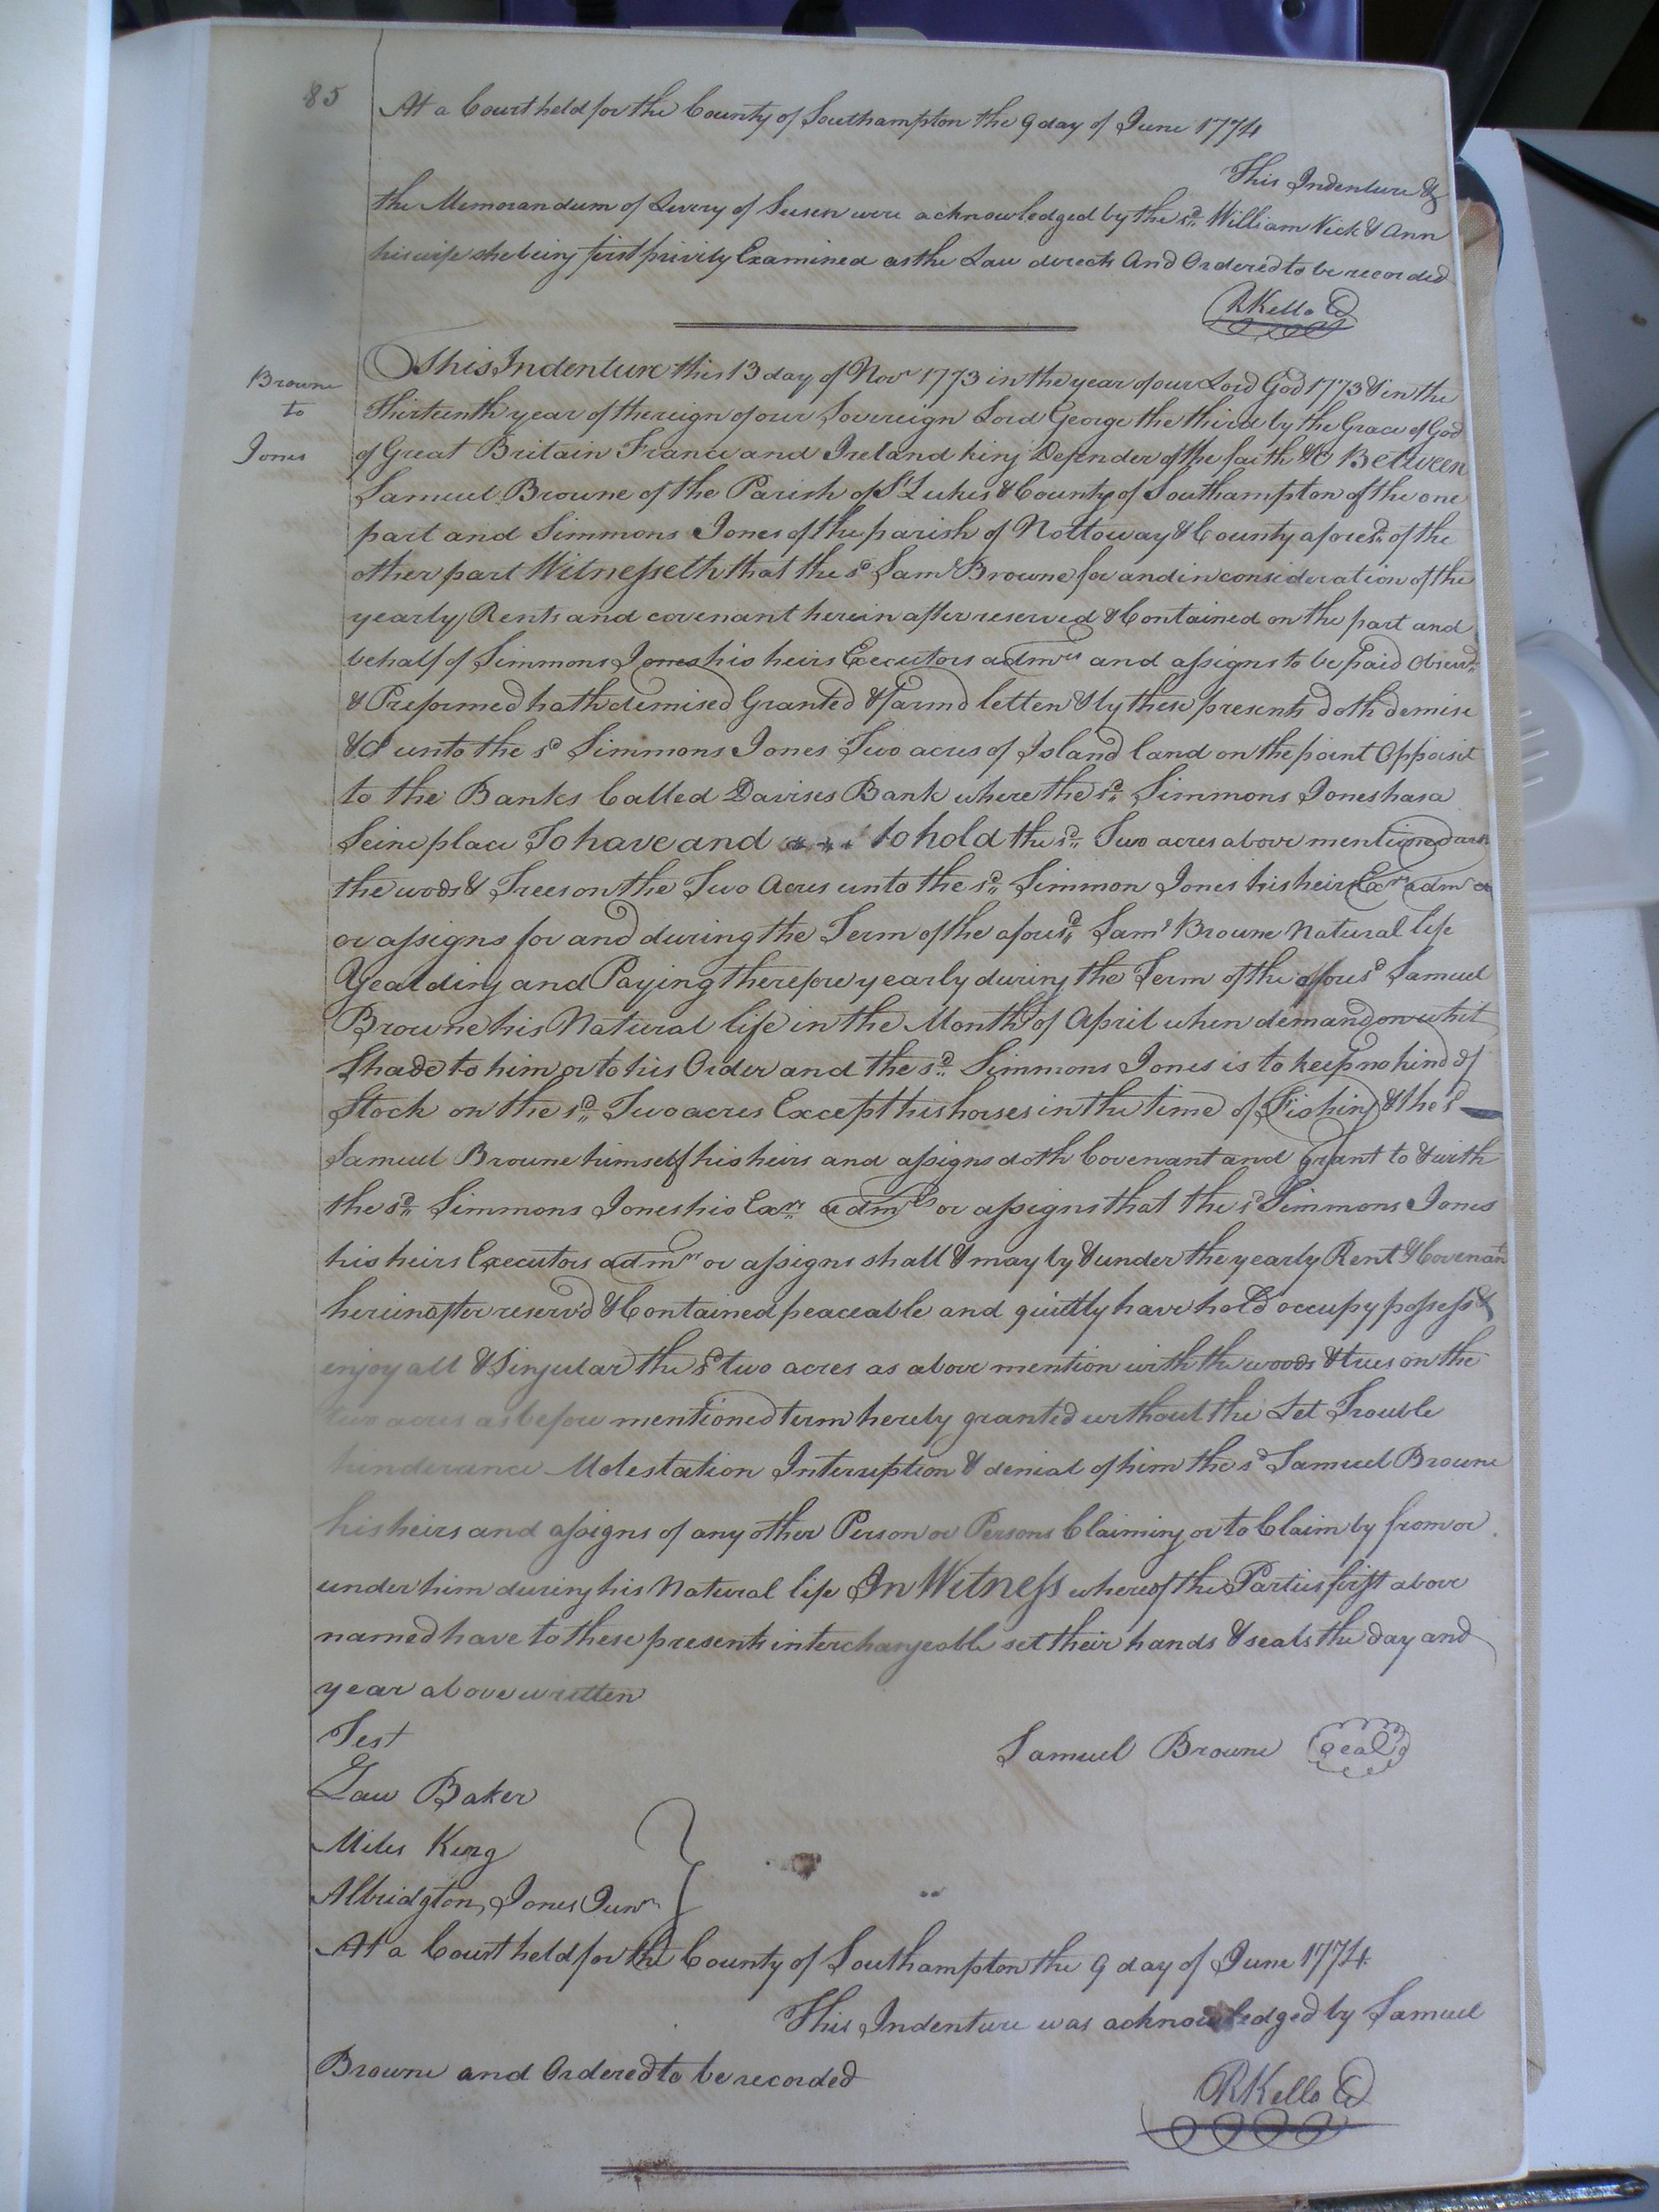 85
At a Court held for the County of Southampton the 9 day of June 1774
This Indenture &
the Memorandum of Livery of Seisen were acknowledged by the sd. William Vick & Ann
his wife she being first privily Examined as the Law directs And Ordered to be recorded
RKello
Browne
to
Jones
This Indenture this 13 day of Novr 1773 in the year of our Lord God 1773 & in the
Thirteenth year of the reign of our Sovereign Lord George the third by the Grace of God
of Great Britain France and Ireland king Defender of the faith &c Between
Samuel Browne of the Parish of St Lukes & County of Southampton of the one
part and Simmons Jones of the parish of Nottoway & County aforesd. of the
other part Witnesseth that the sd Saml Browne for and in consideration of the
yearly Rents and covenant herein after reserved & Contained on the part and
behalf of Simmons Jones his heirs Executors admrs and assigns to be Paid Observd.
& Preformed hath demised Granted & farmd letten & by these presents doth demise
&c unto the sd Simmons Jones Two acres of Island land on the point Opposit
to the Banks Called Davises Bank where the sd. Simmons Jones has a
Seine place To have and to hold the sd. Two acres above mentioned
the woods & Trees on the Two Acres unto the sd. Simmon Jones his heirs Exrs admrs
or assigns for and during the Term of the aforesd. Saml Browne Natural life
Yealding and Paying therefore yearly during the Term of the aforesd Samuel
Browne his Natural life in the Month of April when demand on whit
Shade to him or to his Order and the sd. Simmons Jones is to keep no kind of
Stock on the sd. Two acres Except his horses in the time of Fishing & the sd
Samuel Browne himself his heirs and assigns doth Covenant and grant to & with
the sd. Simmons Jones his Exrs. admrs or assigns that the sd Simmons Jones
his heirs Executors admrs or assigns shall & may by & under the yearly Rent & Covenant
hereinafter reservd & Contained peaceable and quietly have hold occupy possess &
enjoy all & Singular the sd two acres as above mention with the woods & trees on the
two acres as before mentioned term hereby granted without the Let Trouble
hinderance Molestation Interruption & denial of him the sd Samuel Browne
his heirs and assigns of any other Person or Persons Claiming or to Claim by from or
under him during his Natural life In Witness whereof the Parties first above
named have to these presents interchangeable set their hands & seals the day and
year above written
Test
Samuel Browne Seal
Law Baker
Miles King
Albridgton Jones Junr
At a Court held for the County of Southampton the 9 day of June 1774
This Indenture was acknowledged by Samuel
Browne and Ordered to be recorded
RKello